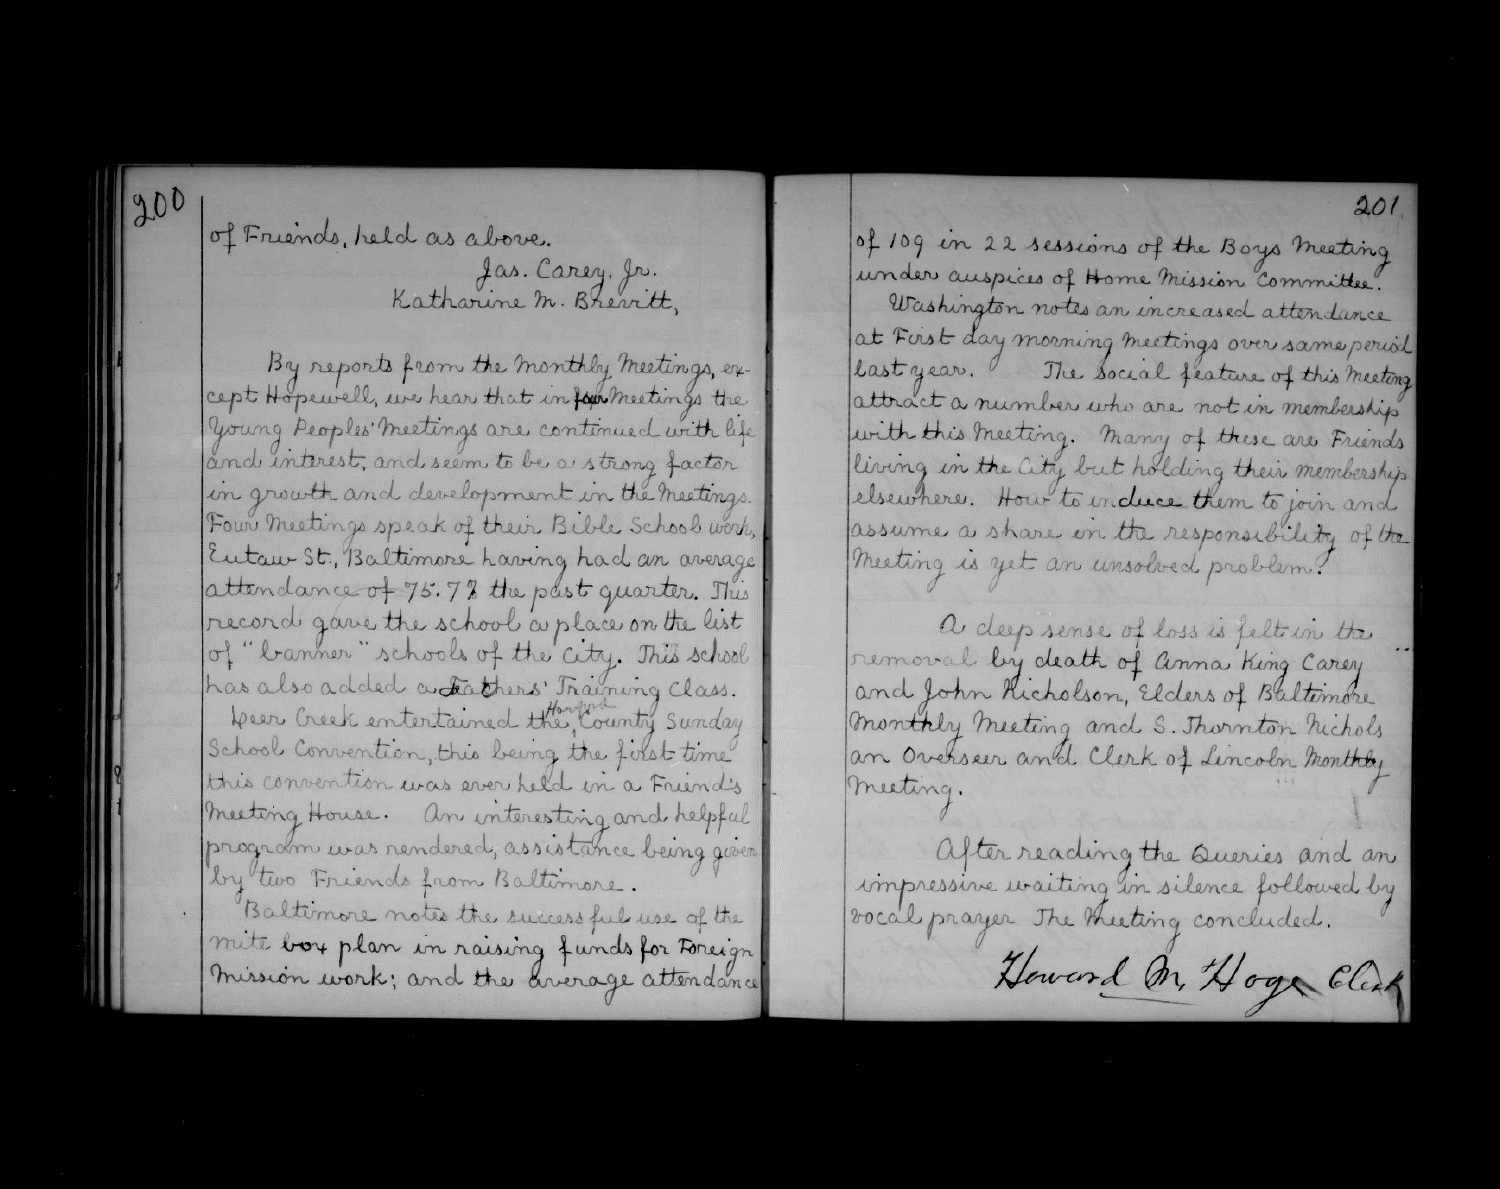 200
of Friends, held as above.
Jas. Carey, Jr.
Katharine M. Brevitt,
By reports from the Monthly Meetings, ex-
cept Hopewell, we hear that in four Meetings the
Young Peoples' Meetings are continued with life
and interest, and seem to be a strong factor
in growth and development in the Meetings.
Four Meetings speak of their Bible School work,
Eutaw St., Baltimore having had an average
attendance of 75.7% the past quarter. This
record gave the school a place on the list
of "banner" schools of the City. This school
has also added a Teachers' Training Class.
Deer Creek entertained the Harford County Sunday
School Convention, this being the first time
this convention was ever held in a Friend's
Meeting House. An interesting and helpful
program was rendered, assistance being given
by two Friends from Baltimore.
Baltimore notes the successful use of the
mite box plan in raising funds for Foreign
Mission work; and the average attendance
201
of 109 in 22 sessions of the Boys Meeting
under auspices of Home Mission Committee.
Washington notes an increased attendance
at First day morning Meetings over same period
last year. The social feature of this Meeting
attract a number who are not in membership
with this Meeting. Many of these are Friends
living in the City but holding their membership
elsewhere. How to induce them to join and
assume a share in the responsibility of the
Meeting is yet an unsolved problem.
A deep sense of loss is felt in the
removal by death of Anna King Carey
and John Nicholson, Elders of Baltimore
Monthly Meeting and S. Thornton Nichols
an Overseer and Clerk of Lincoln Monthly
Meeting.
After reading the Queries and an
impressive waiting in silence followed by
vocal prayer The Meeting concluded.
Howard M. Hoge Clerk